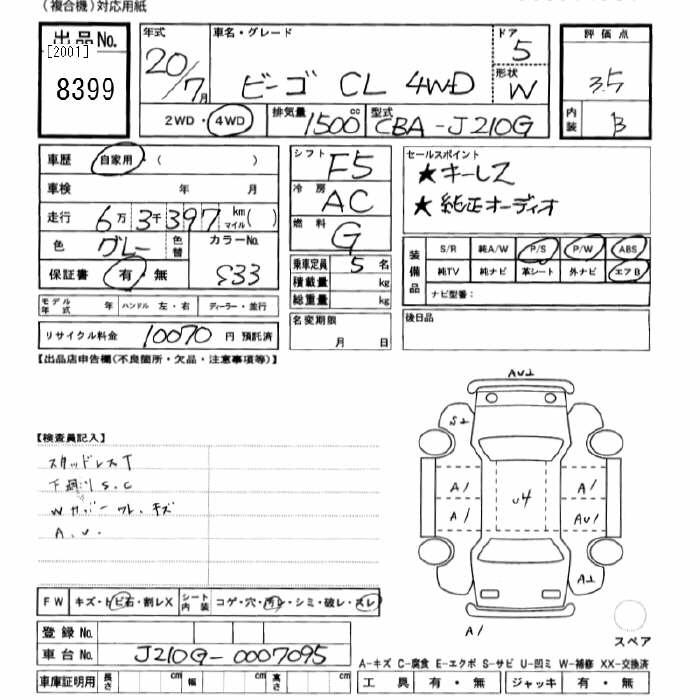 （複合機）対応用紙
出品No.
[2001]
8399
年式
20/7月
車名・グレード
ビーゴ CL 4WD
ドア
5
形状
W
評価点
3.5
内装
B
2WD・4WD
排気量
1500cc
型式
CBA-J210G
車歴 自家用・（ ）
車検 年 月
走行 6万3千397 km マイル( )
色 グレー 色替 カラーNo.
S33
保証書 有・無
モデル年式 年 ハンドル 左・右 ディーラー・並行
リサイクル料金 10070 円 預託済
シフト F5
冷房 AC
燃料 G
乗車定員 5 名
積載量 kg
総重量 kg
名変期限
月 日
セールスポイント
★キーレス
★純正オーディオ
装備品
S/R 純A/W P/S P/W ABS
純TV 純ナビ 革シート 外ナビ エアB
ナビ型番：
後日品
【出品店申告欄(不良箇所・欠品・注意事項等)】
【検査員記入】
スタッドレスT
下廻り S.C
Wカバーワレ、キズ
A.U.
AU2
S2
A1
A1
U4
A1
AU1
A2
A1
スペア
FW キズ・トビ石・割レX シート内装 コゲ・穴・汚レ・シミ・破レ・スレ
登録No.
車台No. J210G-0007095
車庫証明用 長さ cm 幅 cm 高さ cm
A-キズ C-腐食 E-エクボ S-サビ U-凹ミ W-補修 XX-交換済
工具 有・無 ジャッキ 有・無